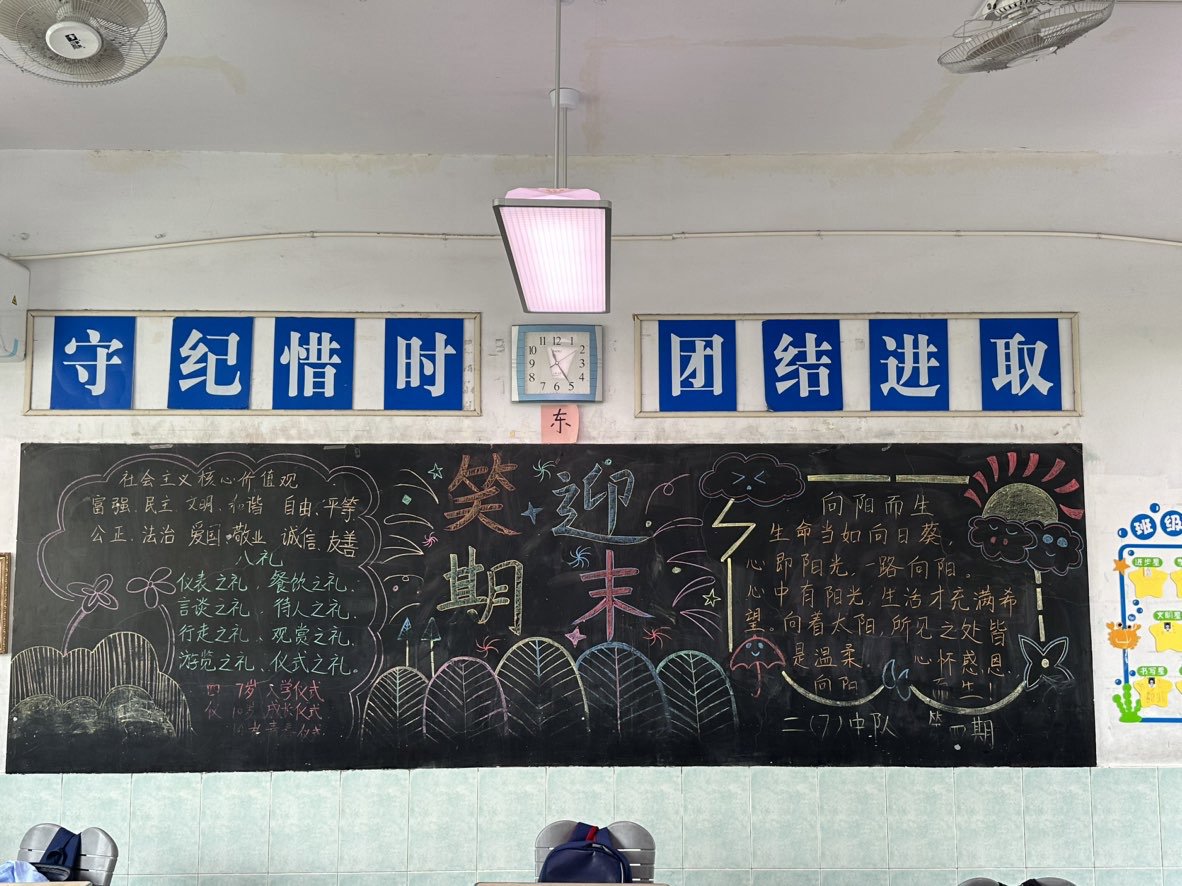 守纪惜时
团结进取
12
11
1
10
2
9
3
8
4
7
5
6
东
社会主义核心价值观
富强、民主、文明、和谐 自由、平等
公正、法治 爱国、敬业 诚信、友善
八礼
仪表之礼 餐饮之礼、
言谈之礼、待人之礼、
行走之礼、观赏之礼、
游览之礼、仪式之礼。
四 7岁 入学仪式
仪 成长仪式
笑迎
期末
向阳而生
生命当如向日葵，
心即阳光，一路向阳。
心中有阳光，生活才充满希
望。向着太阳，所见之处皆
是温柔. 心怀感恩，
向阳而生！
二（7）中队 第四期
班级
进步星
文明星
书写星